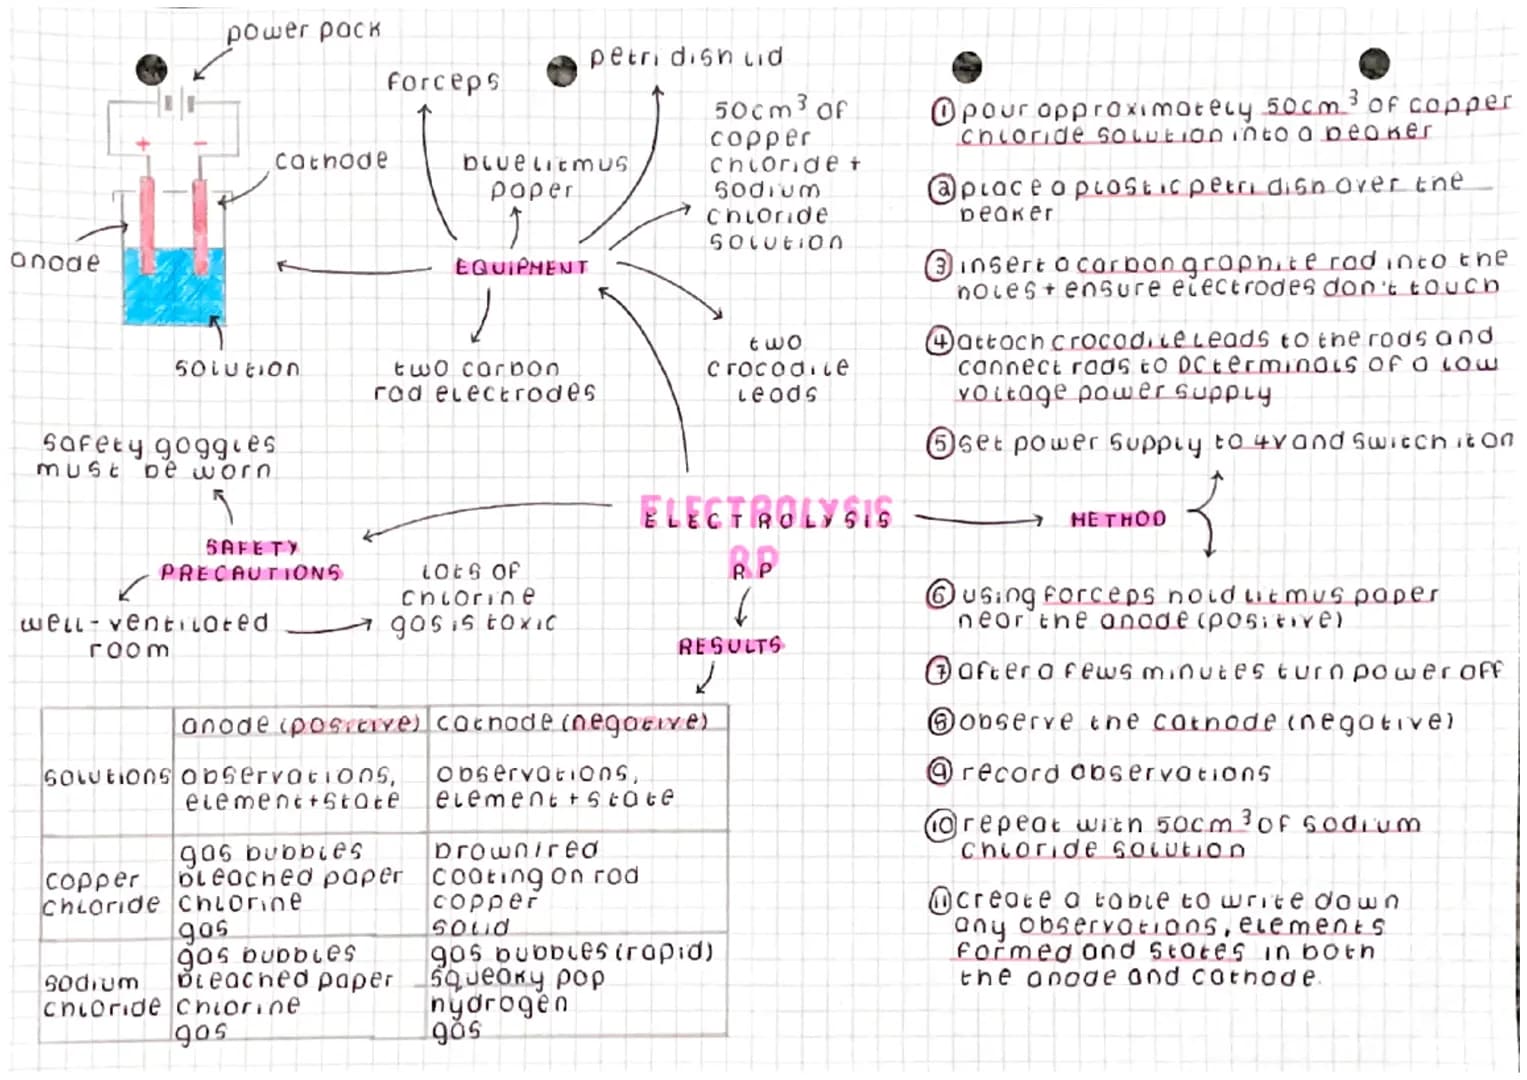 power pack
+ -
cathode
anode
solution
forceps
petri dish lid
blue litmus
paper
50cm³ of
copper
chloride +
sodium
chloride
solution
EQUIPMENT
two carbon
rod electrodes
two
crocodile
leads
ELECTROLYSIS
ELECTROLYSIS
RP
RP
SAFETY
PRECAUTIONS
safety goggles
must be worn
well-ventilated
room
lots of
chlorine
gas is toxic
RESULTS
anode (positive) cathode (negative)
solutions observations, observations,
element+state element + state
copper chloride
gas bubbles brown/red
bleached paper coating on rod
chlorine copper
gas solid
sodium chloride
gas bubbles gas bubbles (rapid)
bleached paper squeaky pop
chlorine hydrogen
gas gas
METHOD
① pour approximately 50cm³ of copper
chloride solution into a beaker
② place a plastic petri dish over the
beaker
③ insert a carbon graphite rod into the
holes + ensure electrodes don't touch
④ attach crocodile leads to the rods and
connect rods to DC terminals of a low
voltage power supply
⑤ set power supply to 4V and switch it on
⑥ using forceps hold litmus paper
near the anode (positive)
⑦ after a fews minutes turn power off
⑧ observe the cathode (negative)
⑨ record observations
⑩ repeat with 50cm³ of sodium
chloride solution
⑪ create a table to write down
any observations, elements
formed and states in both
the anode and cathode.